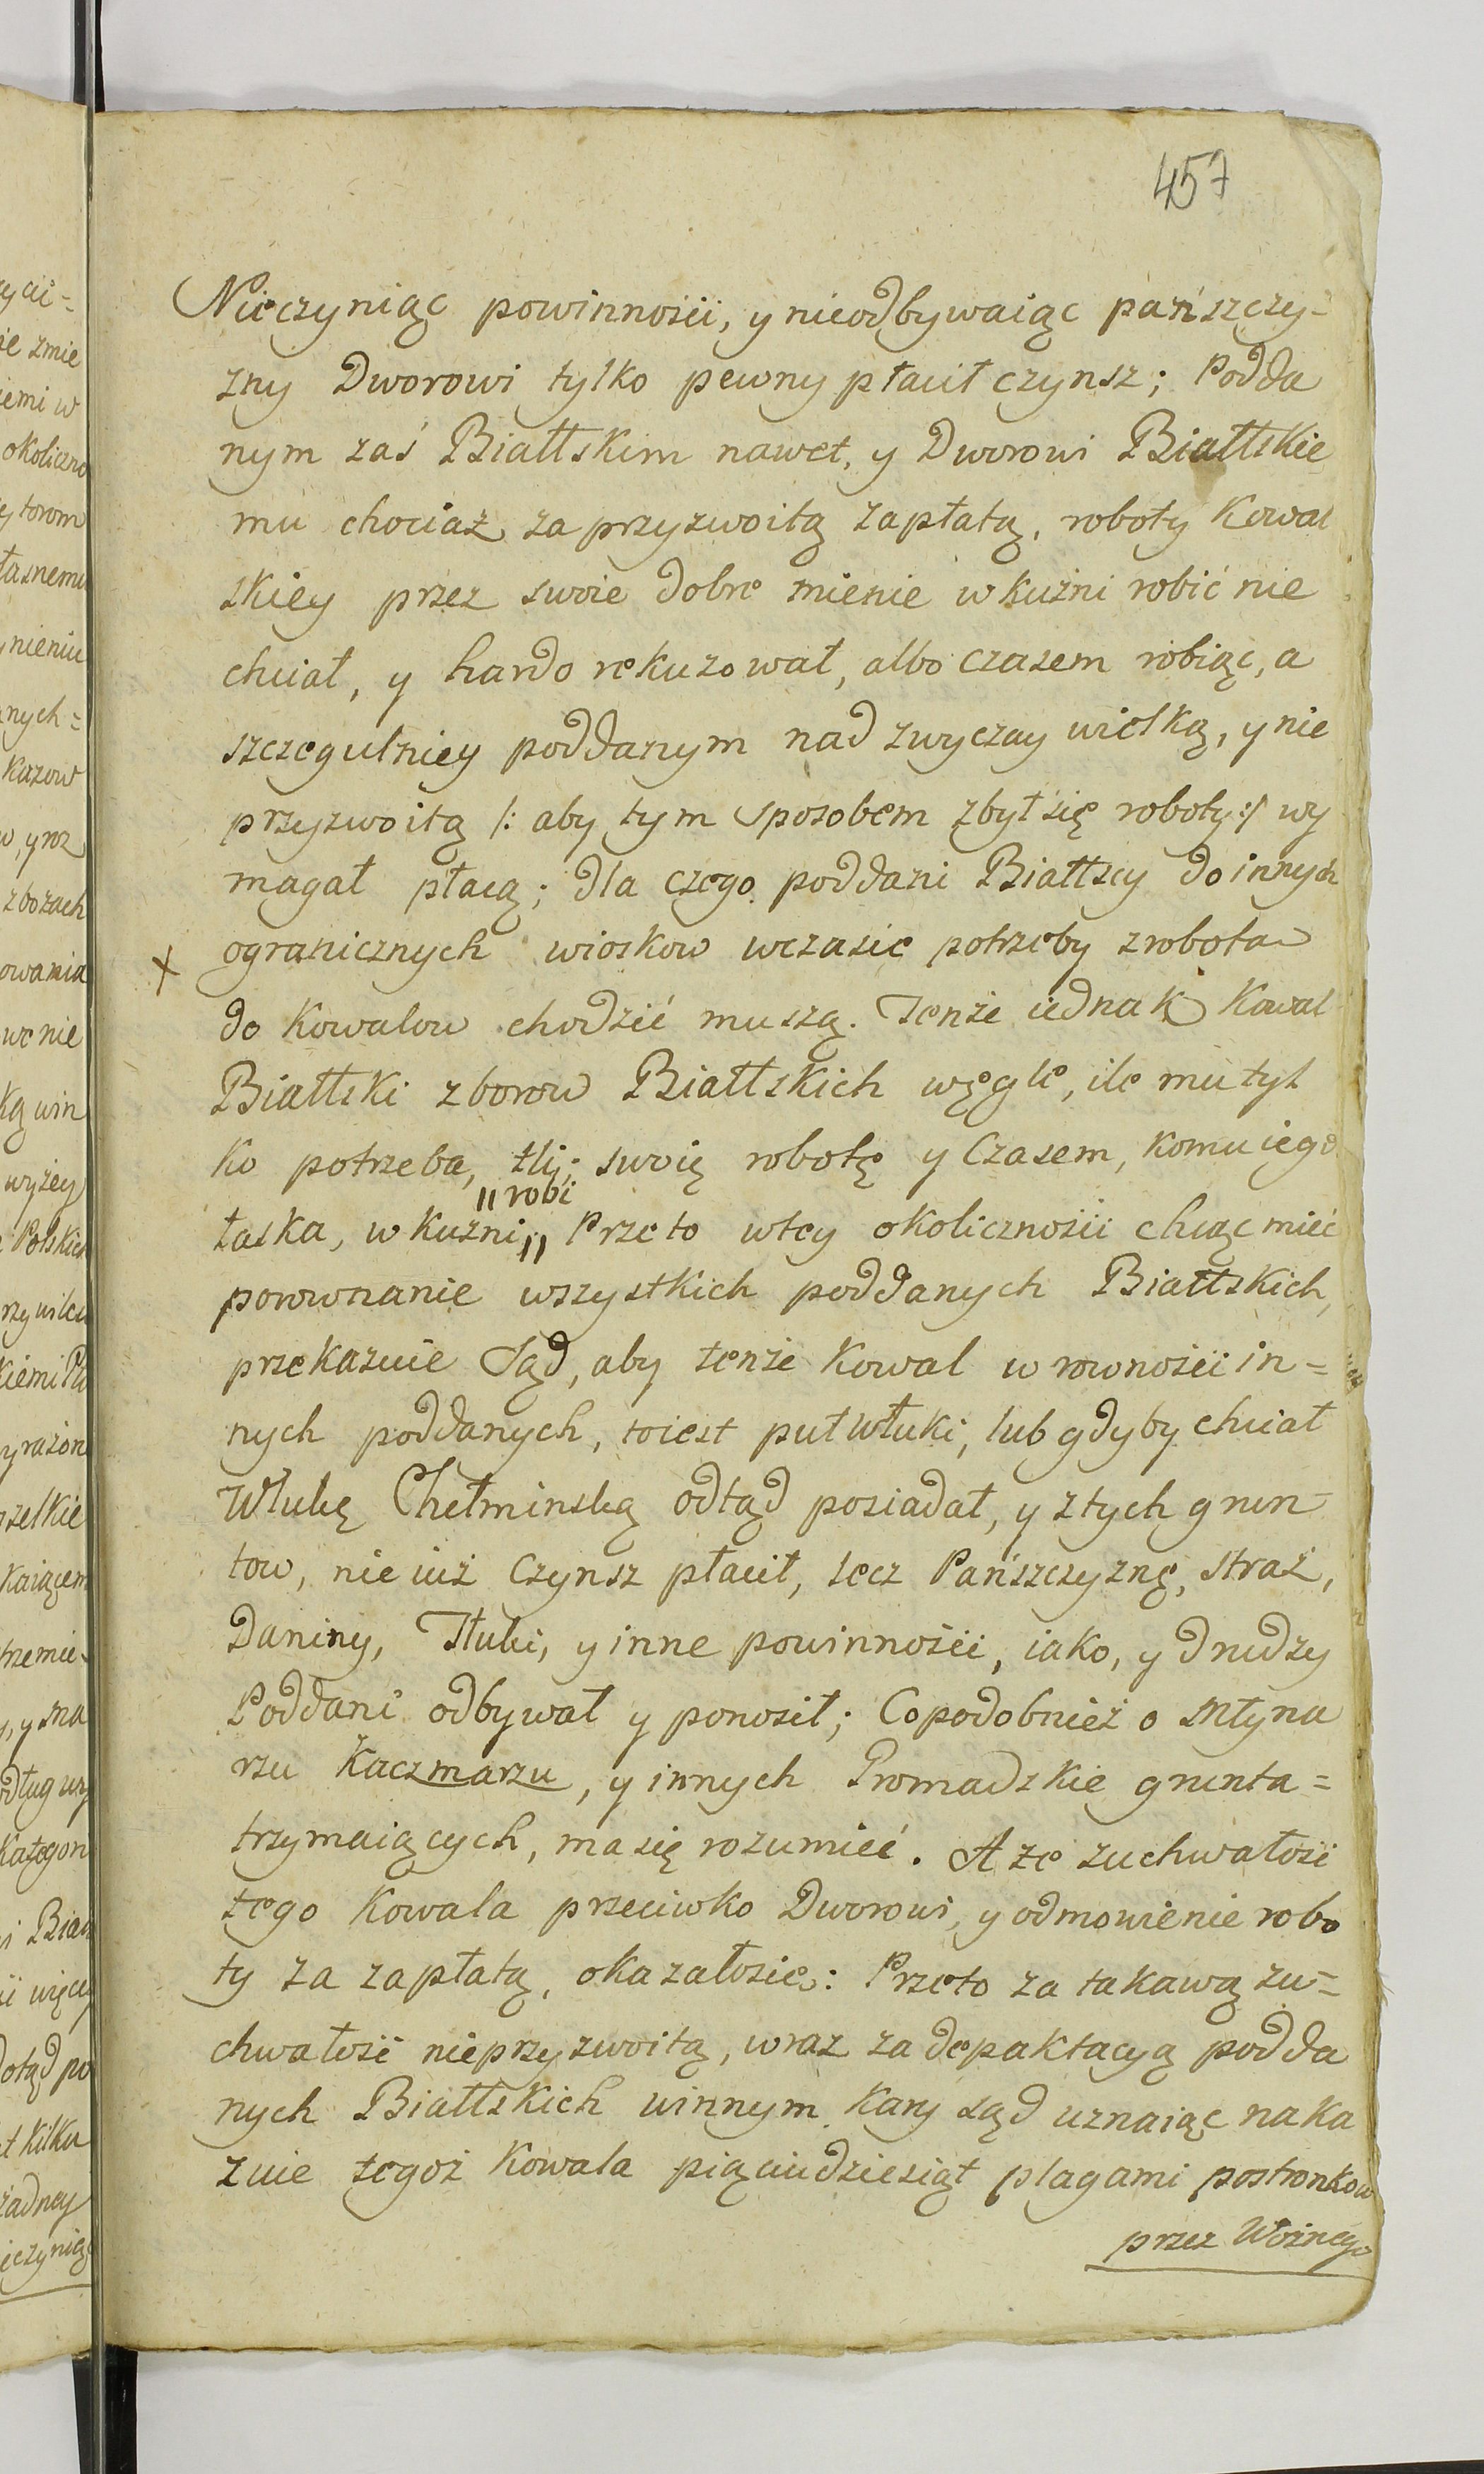 457
Nieczyniąc powinności, y nieodbywaiąc pańszczy-
zny Dworowi tylko pewny płacił czynsz; Podda
nym zaś Białłskim nawet, y Dworowi Białłskie
mu chociaż za przyzwoitą zapłatą, roboty Kowal
skiey przez swoie dobre mienie w kuźni robić nie
chciał, y hardo rekuzował, albo czasem robiąc, a
szczegulniey poddanym nad zwyczay wielką, y nie
przyzwoitą /: aby tym sposobem zbył się roboty :/ wy
magał płacą; dla czego poddani Białłscy do innych
ogranicznych wioskow wczasie potrzeby z robotą
do Kowalow chodzić muszą. Tenże iednak Kowal
Białłski z borow Białłskich węgle, ile mu tyl
ko potrzeba, tli; swoię robotę y Czasem, komu iego
" robi
łaska, w kuźni " Przeto wtey okoliczności chcąc mieć
porownanie wszystkich poddanych Białłskich,
przekazuie Sąd, aby tenże Kowal w rowności in=
nych poddanych, toiest puł włuki, lub gdyby chciał
Włukę Chełminską odtąd posiadał, y z tych grun-
tow, nie iuż Czynsz płacił, lecz Pańszczyznę, straż,
Daniny, Tłuki, y inne powinności, iako, y drudzy
Poddani odbywał y ponosił; Co podobnież o Młyna
rzu Kaczmarzu, y innych Gromadzkie grunta=
trzymaiących, ma się rozumieć. A że zuchwałość
tego Kowala przeciwko Dworowi, y odmowienie robo
ty za zapłatą, okazało sie: Przeto za takawą zu=
chwałość nieprzyzwoitą, wraz za depaktacyą podda
nych Białłskich winnym kary sąd uznaiąc naka
zuie tegoż Kowala pięciudziesiąt plagami postronkow
przez Woźnego